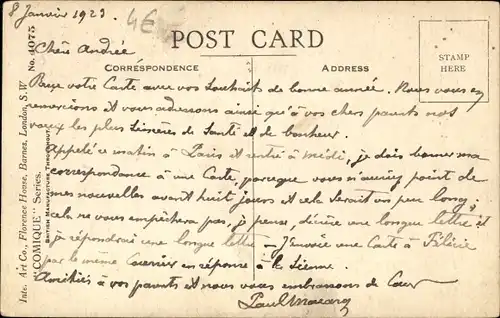 8 Janvier 1923
4€
POST CARD
CORRESPONDENCE
ADDRESS
STAMP
HERE
Chère Andrée
Reçu votre Carte avec vos Souhaits de bonne année. Nous vous en
remercions et vous adressons ainsi qu'à vos chers parents nos
vœux les plus Sincères de Santé et de bonheur.
Appelé ce matin à Paris et rentré à midi, je dois borner ma
correspondance à une Carte, parceque vous n'auriez point de
mes nouvelles avant huit jours et cela serait un peu long,
cela ne vous empêchera pas, je pense, d'écrire une longue lettre et
j'y répondrai une longue lettre — J'envoie une Carte à Félicie
par le même Courrier en réponse à la Sienne.
Amitiés à vos parents et nous vous embrassons de Cœur
Paul
Inter. Art Co., Florence House, Barnes, London, S.W.
"COMIQUE" Series. No. 4075
BRITISH MANUFACTURE THROUGHOUT.